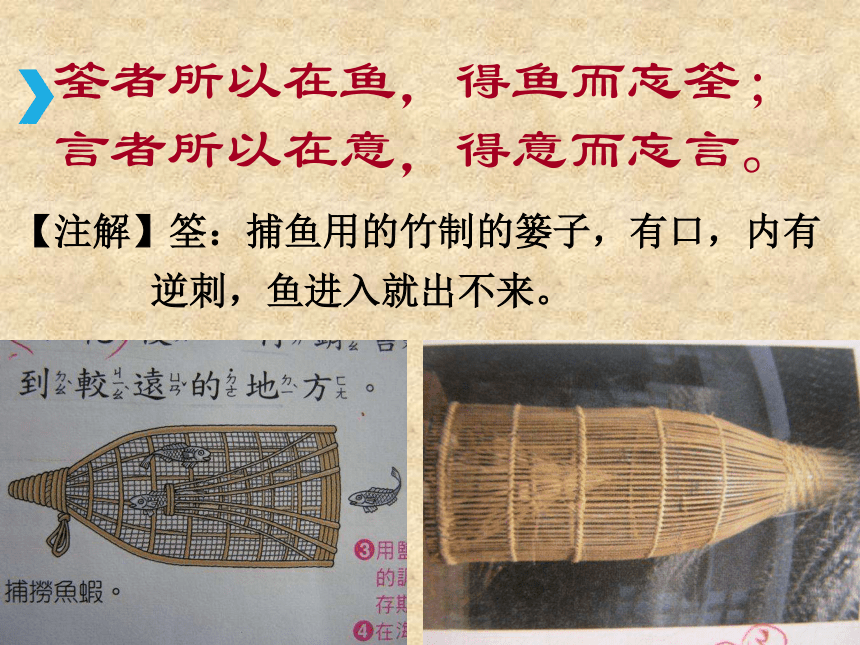 筌者所以在鱼，得鱼而忘筌；
言者所以在意，得意而忘言。
【注解】筌：捕鱼用的竹制的篓子，有口，内有
逆刺，鱼进入就出不来。
到ㄉㄠˋ較ㄐㄧㄠˋ遠ㄩㄢˇ的ㄉㄜ˙地ㄉㄧˋ方ㄈㄤ。
❸用鹽
的訓
存期
捕撈魚蝦。
❹在海